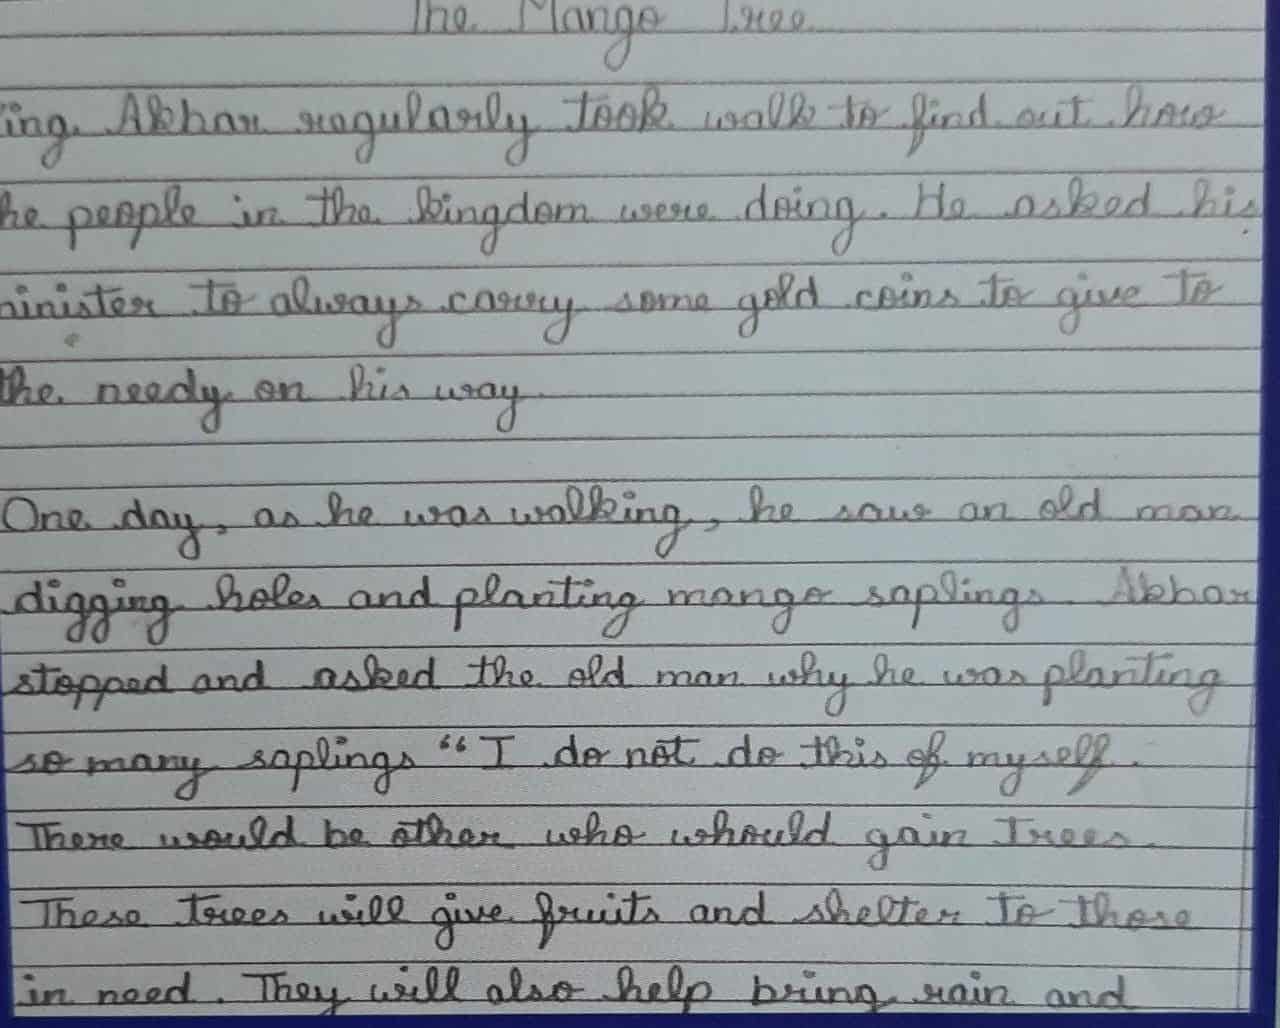 The Mango Tree
ing Akbar regularly took walk to find out how
he people in the kingdom were doing. He asked his
inister to always carry some gold coins to give to
the needy on his way
One day, as he was walking, he saw an old man
digging holes and planting mango saplings. Akbar
stopped and asked the old man why he was planting
so many saplings “I do not do this of myself.
There would be other who whould gain Trees.
These trees will give fruits and shelter to those
in need. They will also help bring rain and